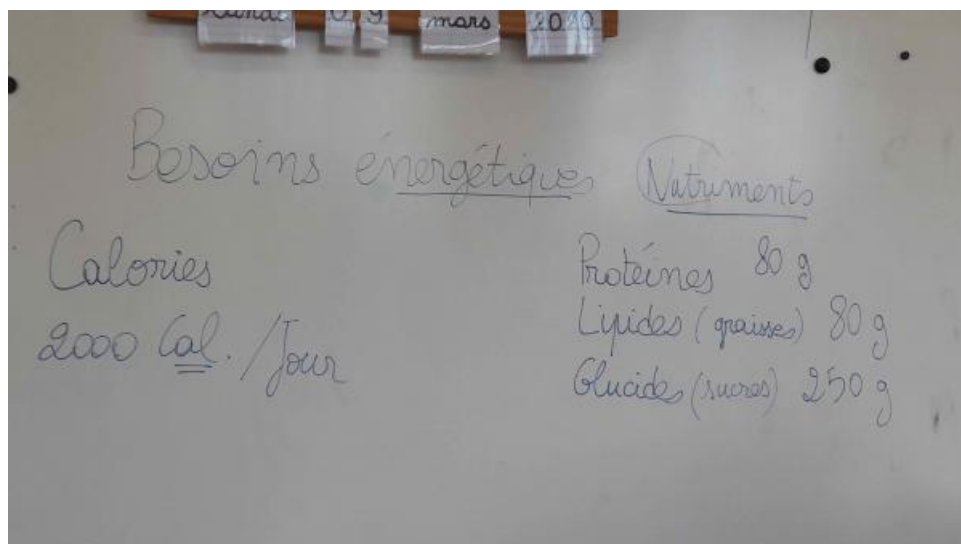 Lundi 09 mars 2020
Besoins énergétiques
Nutriments
Calories
2000 Cal./Jour
Protéines 80 g
Lipides (graisses) 80 g
Glucides (sucres) 250 g